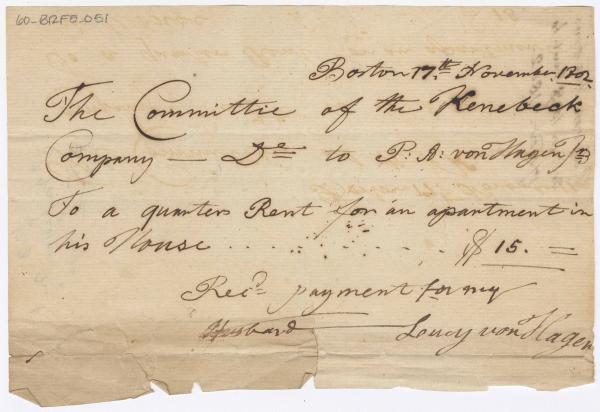 60-BRF5-051
Boston 17th November 1802.
The Committie of the Kenebeck
Company — Dr to P: A: von Hagen Jr
To a quarters Rent for an apartment in
his House . . . . . . . . . . . $ 15. =
Recd payment for my
Husband Lucy von Hagen